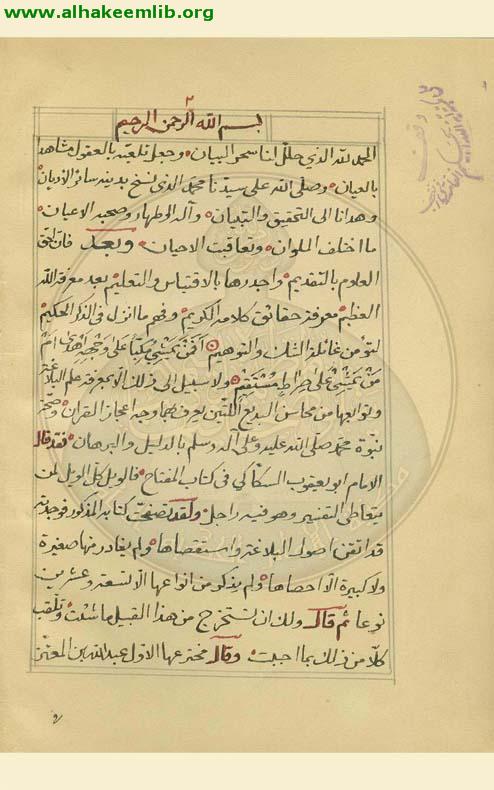 www.alhakeemlib.org
٢
بسم الله الرحمن الرحيم
الحمد لله الذي حلل لنا سحر البيان وجعل تلعبه بالعقول مشاهدا
بالعيان وصلى الله على سيدنا محمد الذي نسخ بدينه سائر الاديان
وهدانا الى التحقيق والتبيان وآله الاطهار وصحبه الاعيان
ما اختلف الملوان وتعاقبت الاحيان وبعد فان احق
العلوم بالتقديم واجدرها بالاقتباس والتعليم بعد معرفة الله
العظيم معرفة حقائق كلامه الكريم وفهم ما انزل في الذكر الحكيم
لتؤمن غائلة الشك والتوهيم أفمن يمشي مكبا على وجهه اهدى امن
من يمشي على صراط مستقيم ولا سبيل الى ذلك الا بمعرفة علم البلاغة
وتوابعها من محاسن البديع اللتين يعرف بهما وجه اعجاز القران وصحة
نبوة محمد صلى الله عليه وعلى آله وسلم بالدليل والبرهان فقد قال
الامام ابو يعقوب السكاكي في كتاب المفتاح فالويل كل الويل لمن
يتعاطى التفسير وهو فيه راجل ولقد تصفحت كتابه المذكور فوجدته
قد اتقن اصول البلاغة واستقصاها ولم يغادر منها صغيرة
ولا كبيرة الا احصاها ولم يذكر من انواعها الا تسعة وعشرين
نوعا ثم قال ولك ان تستخرج من هذا القبيل ما شئت وتلقب
كلا من ذلك بما احببت وقال مخترعها الاول عبد الله بن المعتز